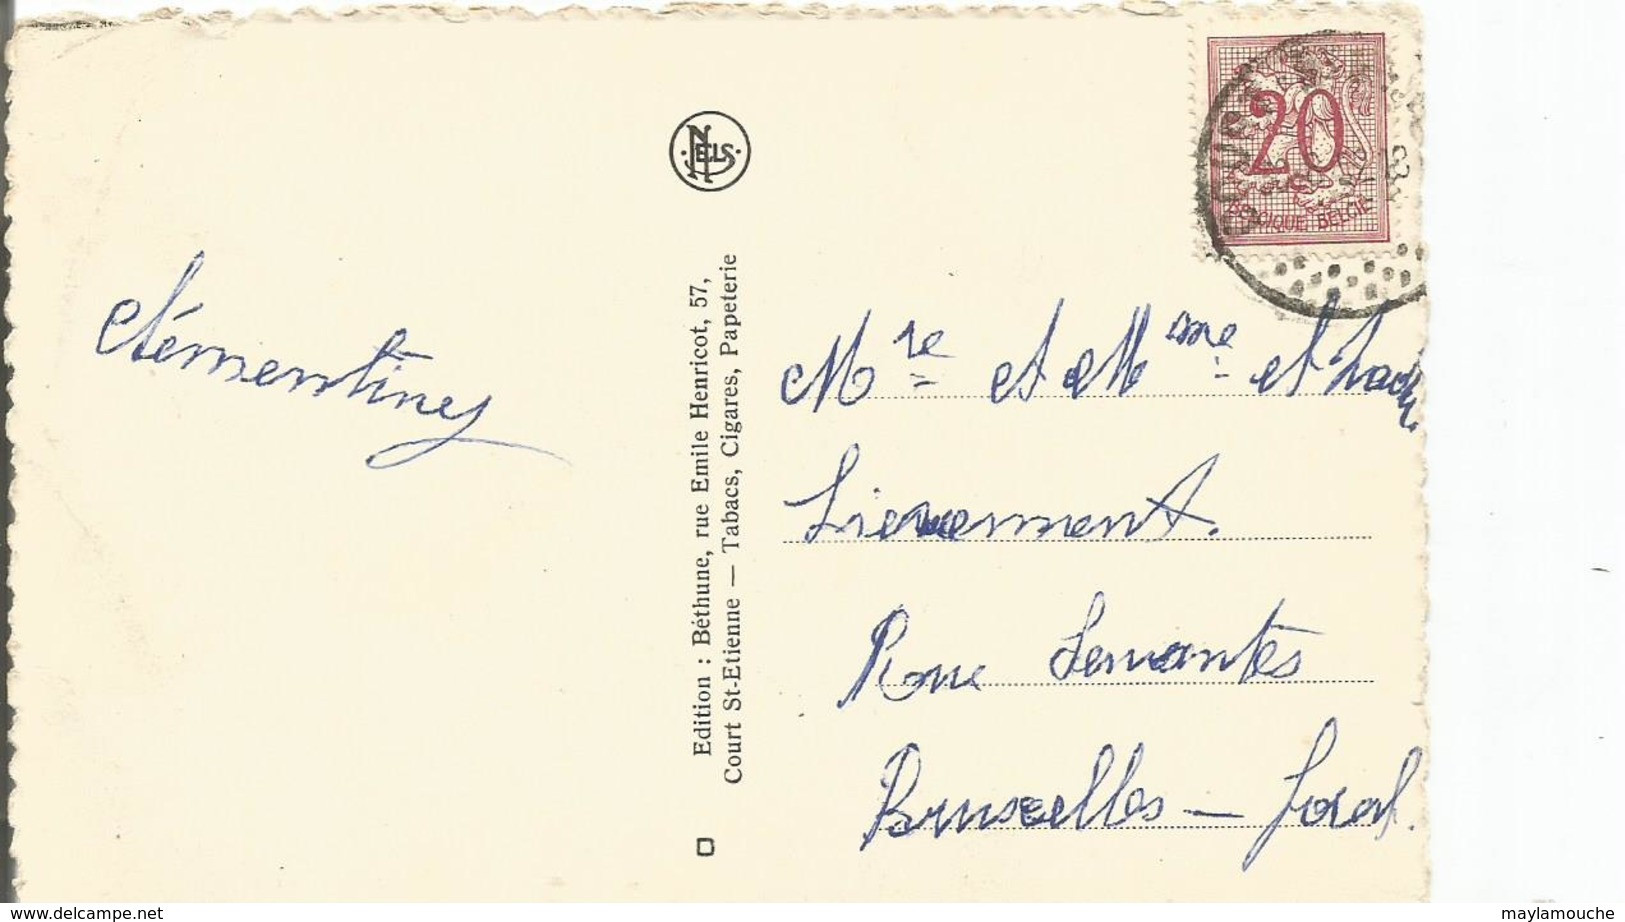 Clémentiney
NELS
Edition : Béthune, rue Emile Henricot, 57,
Court St-Etienne — Tabacs, Cigares, Papeterie
20
BELGIQUE BELGIE
Mre et Mme et
Lievement.
Rue
Bruxelles —
www.delcampe.net
maylamouche